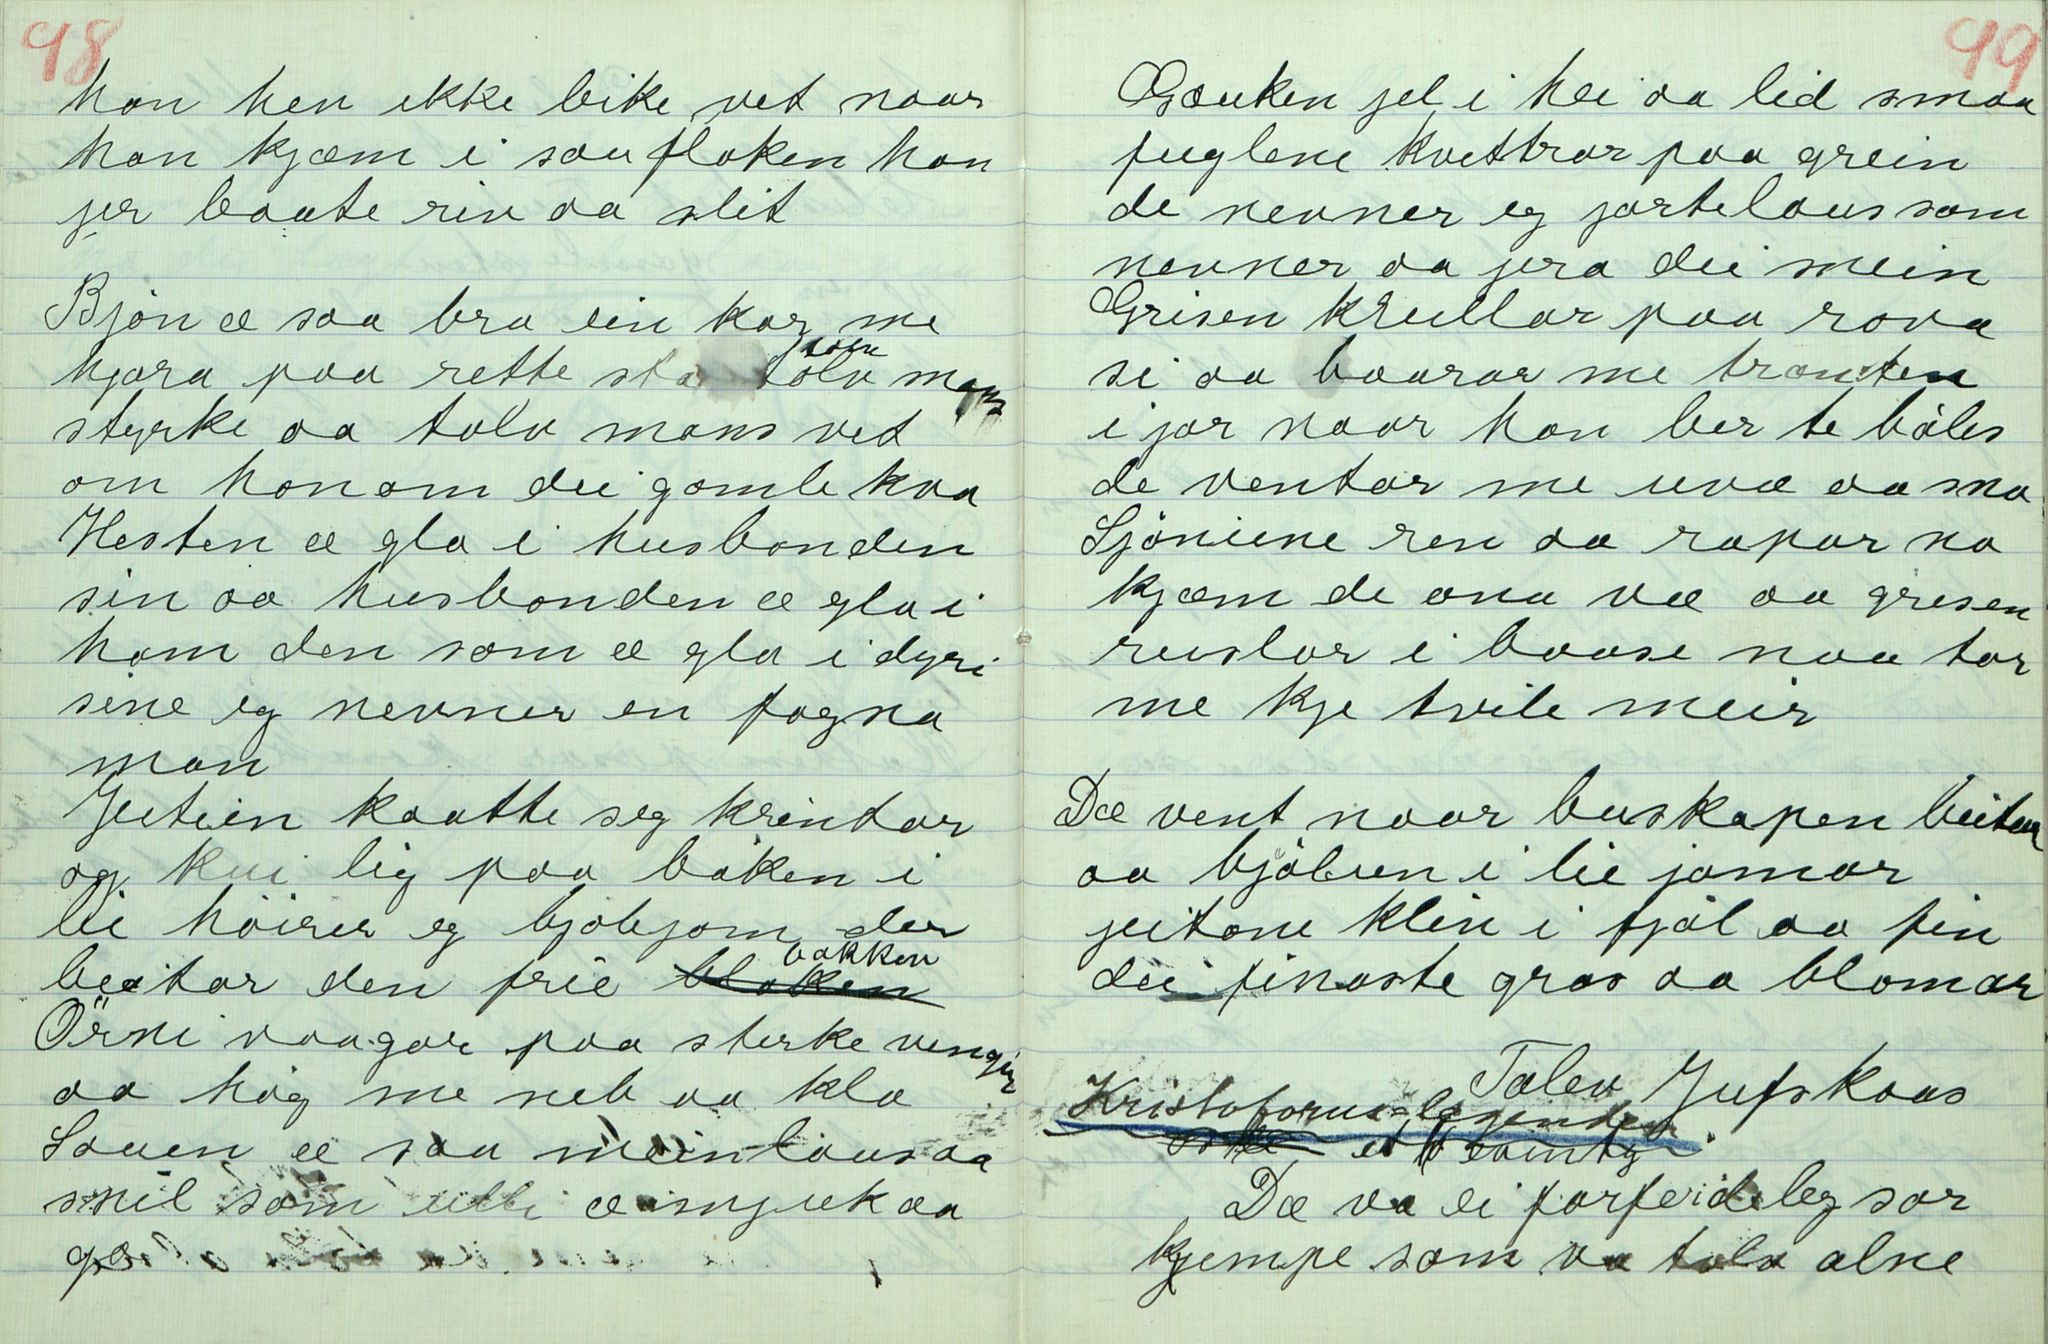 98
han hen ikke like vet naar
han kjæm i sauflaken han
jer baate riv aa slit
Bjön æ saa bra ein kar me
hjara paa rette sta som
tolv mans
styrke aa tolv mans vet
om honom dei gamle kva
Hesten æ gla i husbonden
sin aa husbonden æ gla i
ham den som æ gla i dyri
sine eg nevner en fagna
man
Jeitein kaatte seg krintar
og kui lig paa båken i
lie höirer eg bjøbjom der
beitar den frie blaken bakken
Örni vaagar paa sterke vengjir
aa hög me neb aa klo
Sauen æ saa meinlaus aa
snil som ulli æ mjuk aa
go
99
Gauken jel i hei aa lid smaa
fuglene kvettrar paa grein
de nevner eg jartelaus som
nevner aa jera dei mein
Grisen krullar paa rova
si aa baarar me tranten
i jor naar han ber te båles
de ventar me uvæ aa sno
Sjöniene ren aa rapar no
kjæm de ana væ aa gresen
ruslar i baase naa tar
me kje tvile meir
Dæ vent naar buskapen beitar
aa bjölun i lie jomar
jeitane klin i fjöl aa fin
dei finaste gras aa blomar
Talev Jufskaas
Kristoforus-legende
et eventy
Dæ va ei forfeideleg sor
kjempe som va tolv alne